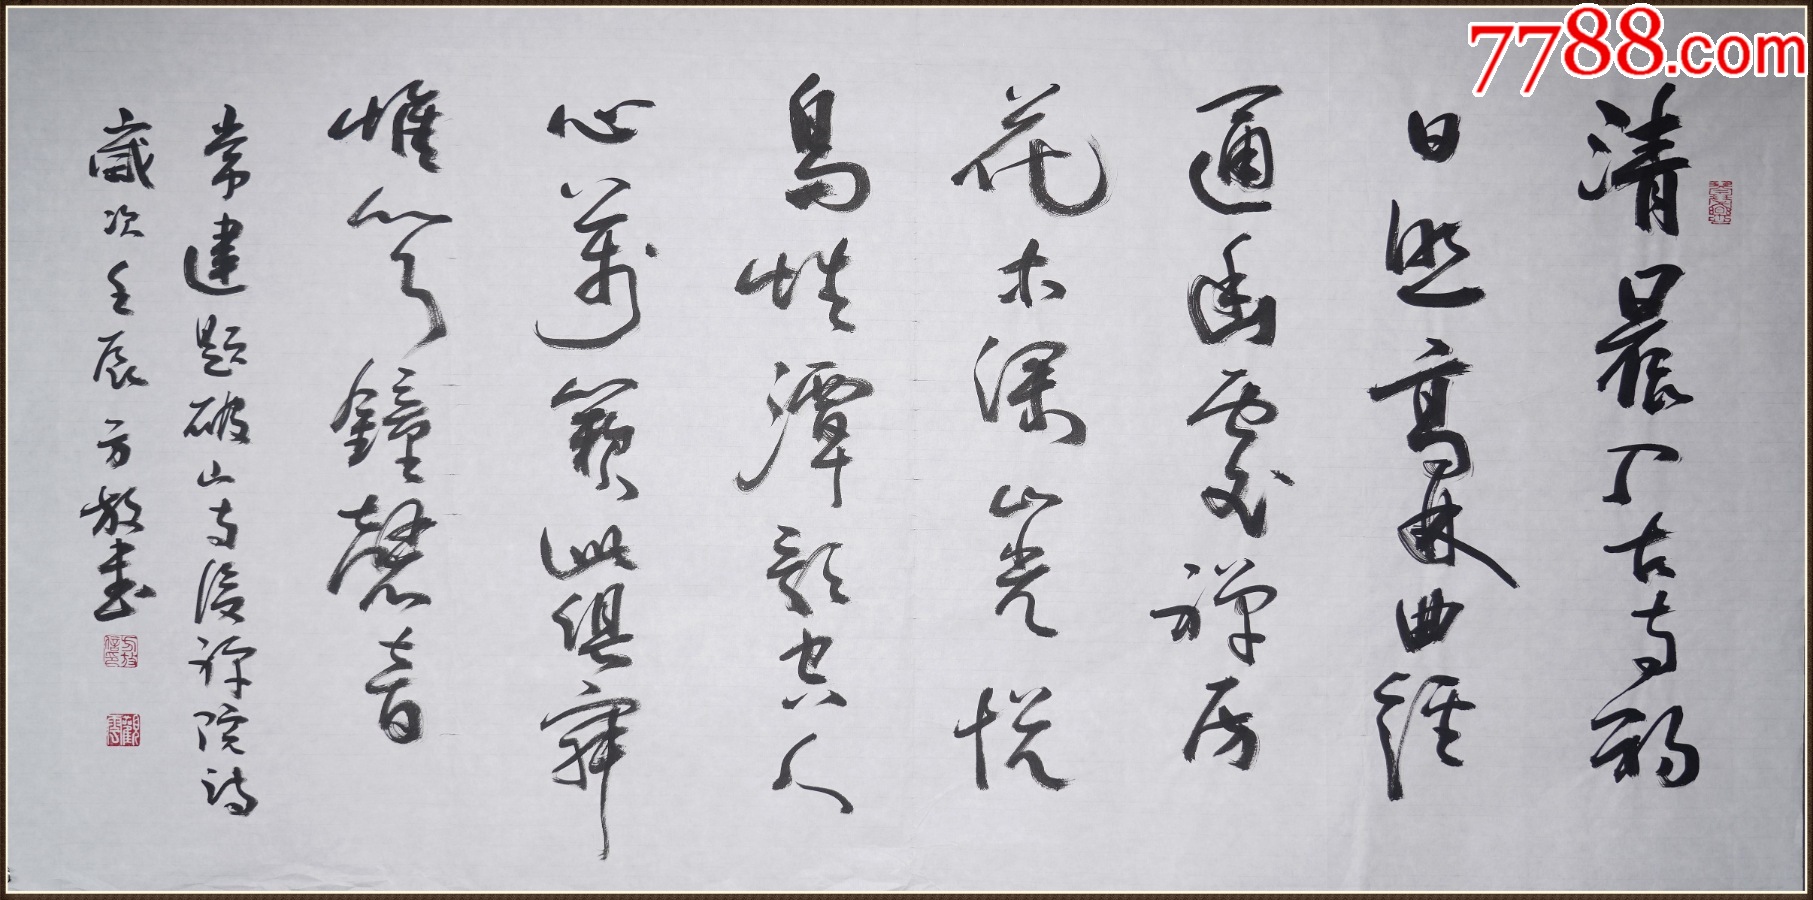 7788.com
清晨入古寺初
日照高林曲徑
通幽處禪房
花木深山光悅
鳥性潭影空人
心萬籟此俱寂
惟聞鐘磬音
常建題破山寺後禪院詩
歲次壬辰方放書